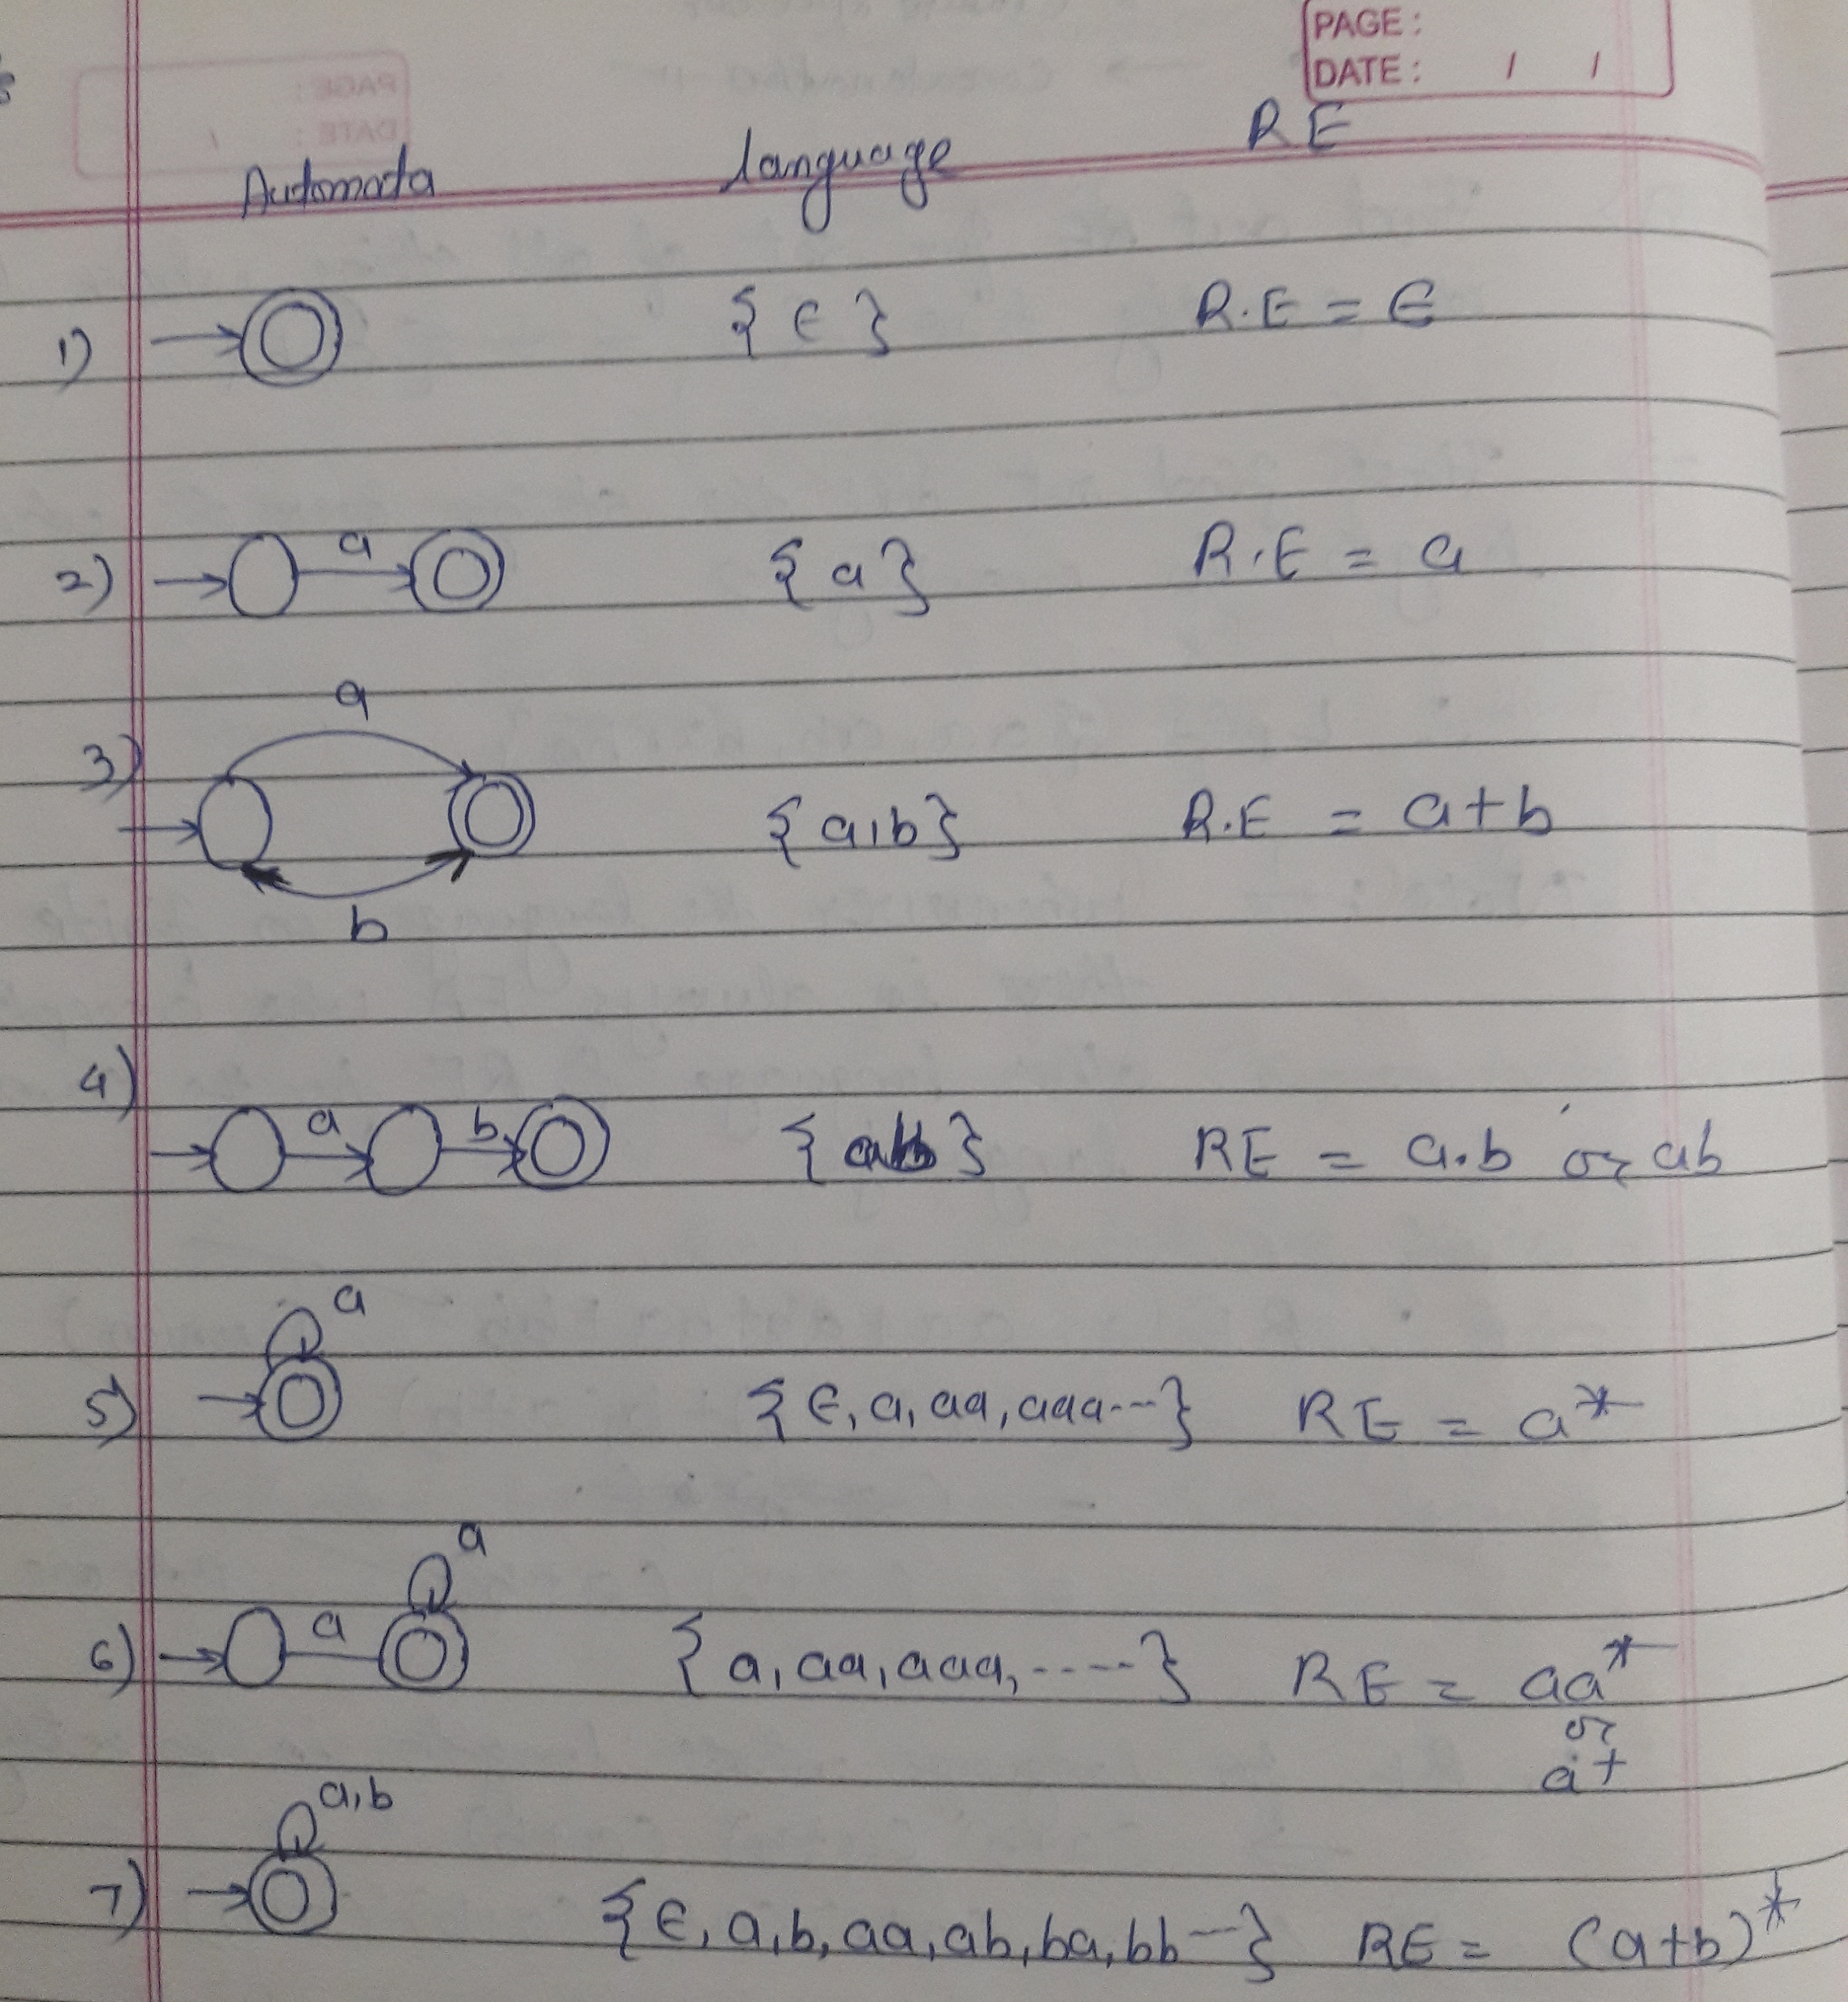 PAGE:
DATE: / /
Automata language RE
1) {ϵ} R.E = ϵ
a
2) {a} R.E = a
a
3) {a,b} R.E = a+b
b
4) a b {ab} RE = a.b or ab
a
5) {ϵ, a, aa, aaa...} RE = a*
a
6) a {a, aa, aaa, .....} RE = aa*
or
a+
a,b
7) {ϵ, a, b, aa, ab, ba, bb --} RE = (a+b)*